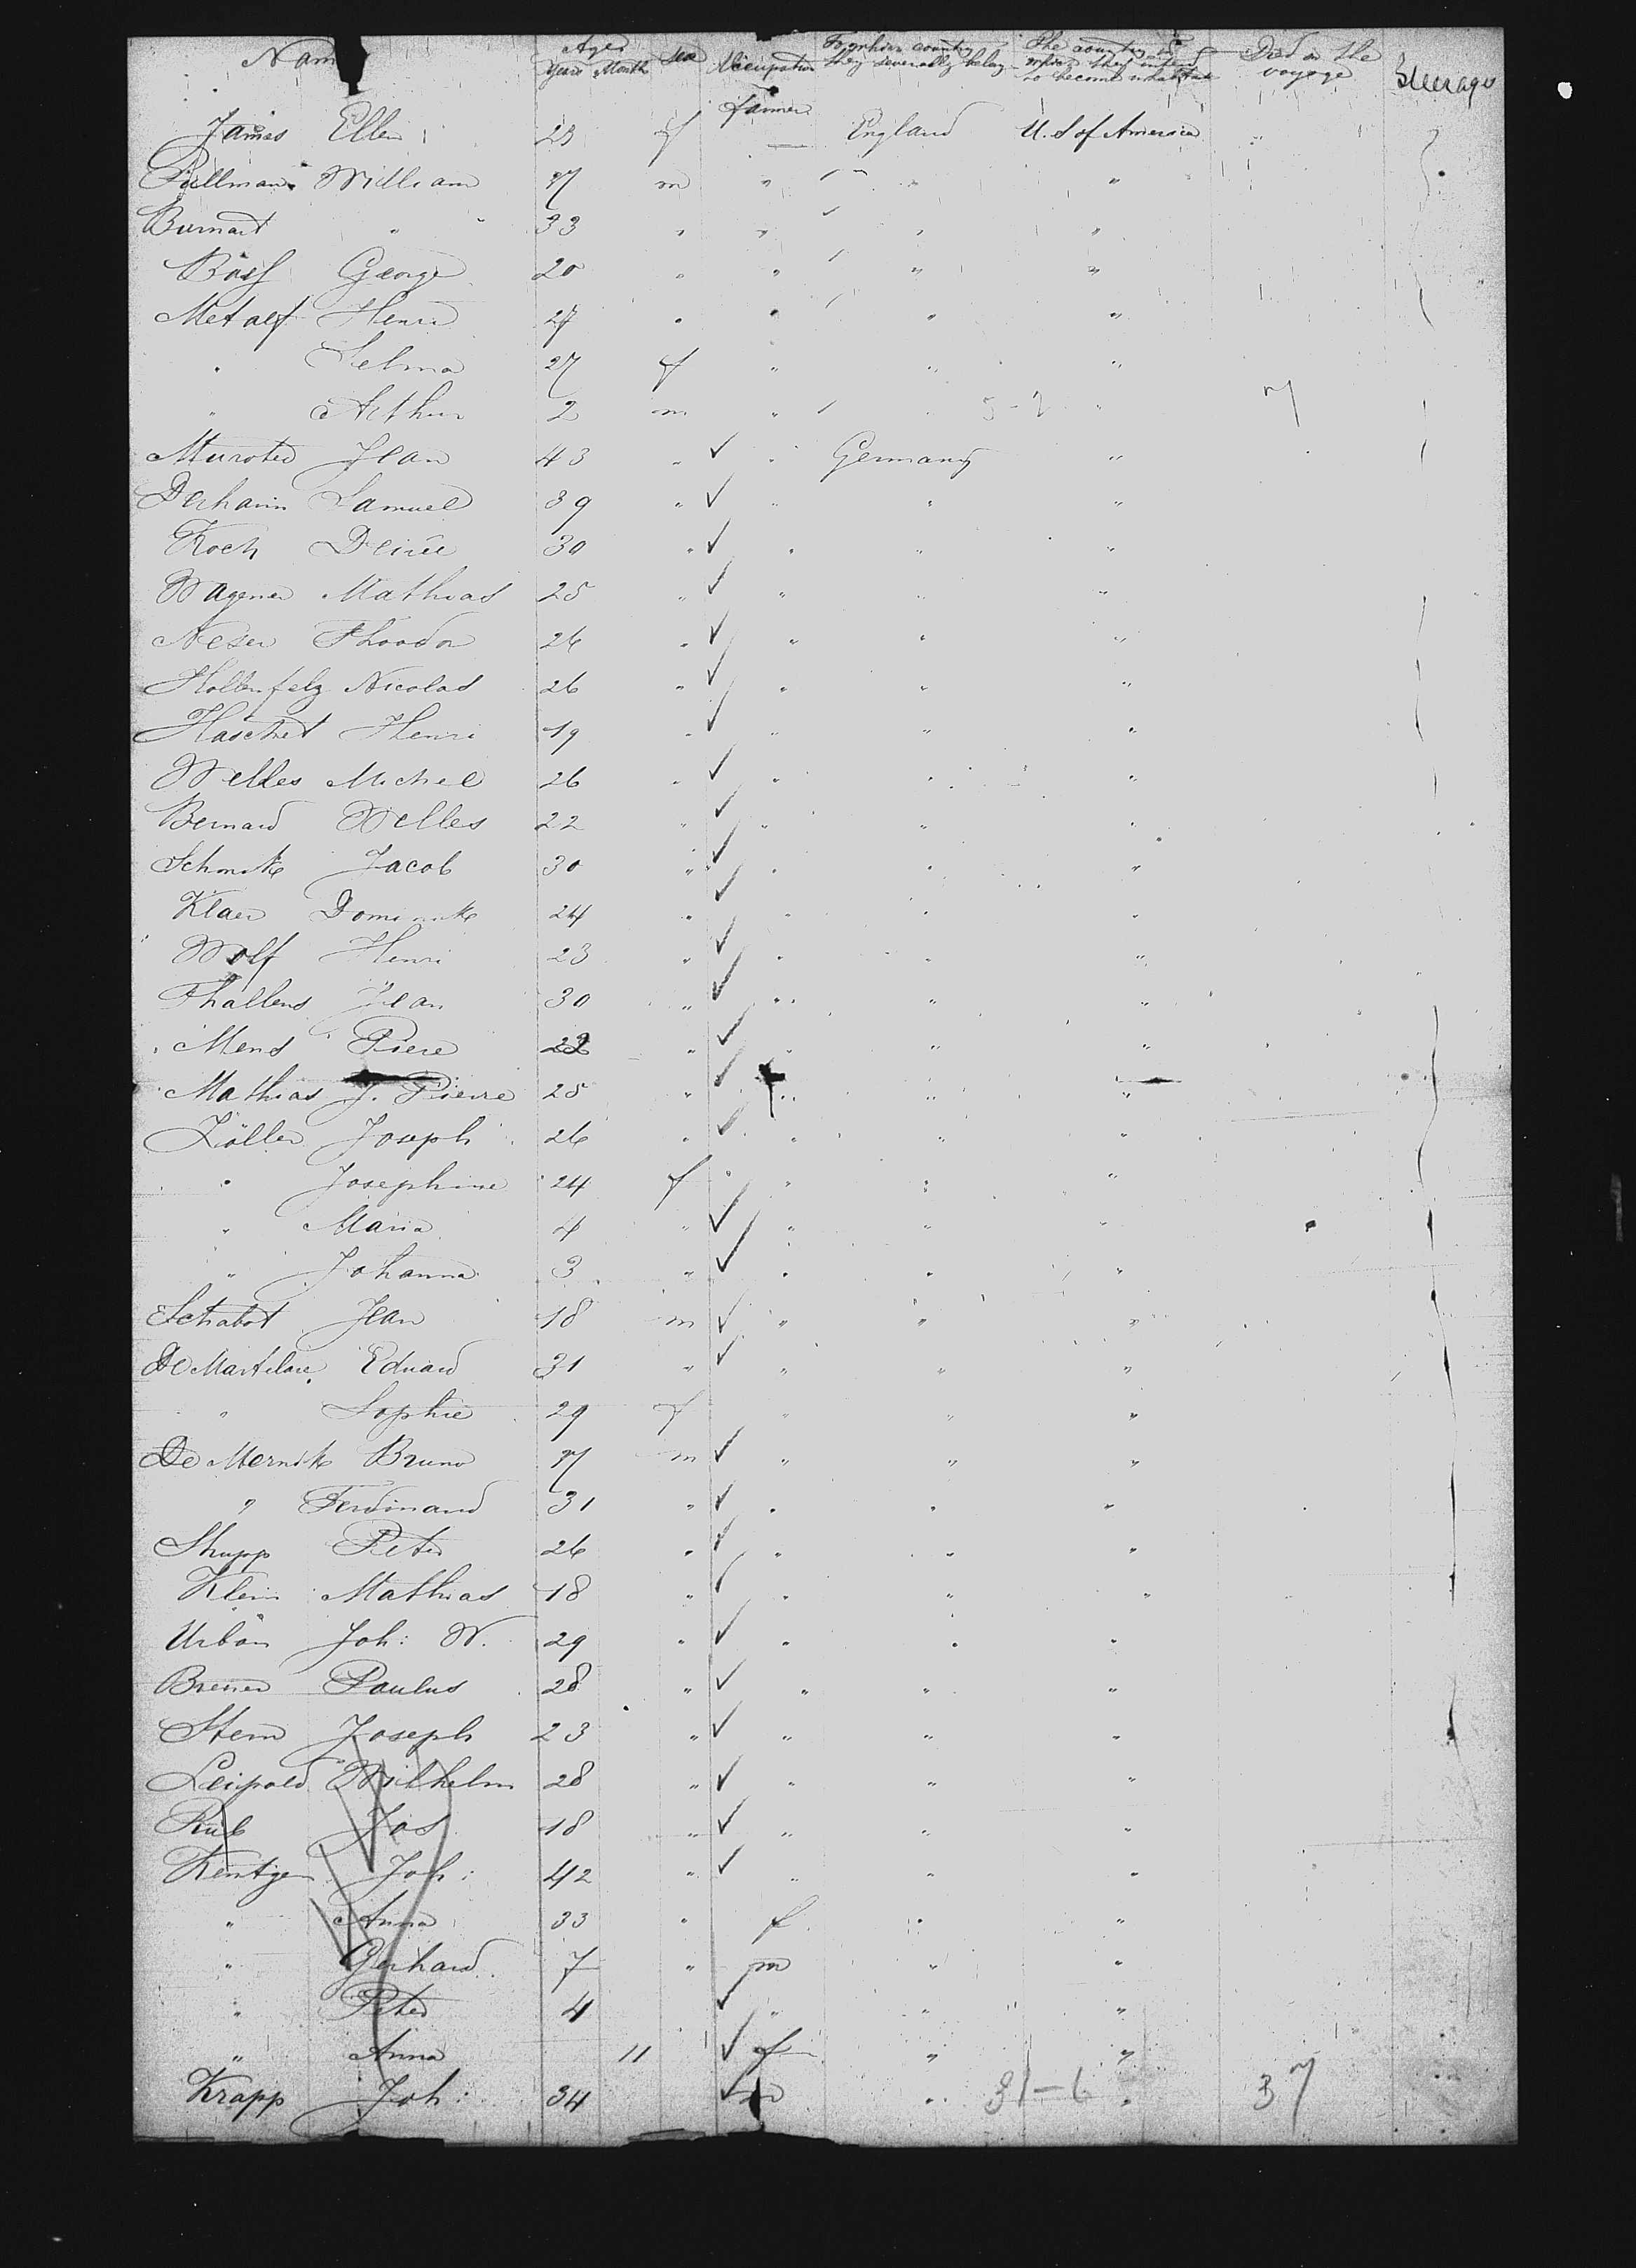 Name Age Years Month Sex Occupation To which country they severally belong The country in which they intend to become inhabitants Died on the voyage Steerage
James Ellen 23 f farmer England U. S of America
Pullman William 27 m " " "
Burnart " 33 " " " "
George 20 " " " "
Metalf Henri 27 " " " "
" Selma 27 f " " "
" Arthur 2 m " " 5-2 " 7
Jean 43 " ✓ " Germany "
Samuel 39 " ✓ " " "
Koch Desirée 30 " ✓ " " "
Wagener Mathias 25 " ✓ " " "
Neser Theodor 26 " ✓ " " "
Hollenfelz Nicolas 26 " ✓ " " "
Haschet Henri 19 " ✓ " " "
Welles Michel 26 " ✓ " " "
Bernard Welles 22 " ✓ " " "
Jacob 30 " ✓ " " "
Klaer Dominik 24 " ✓ " " "
Wolf Henri 23 " ✓ " " "
Thallens Jean 30 " ✓ " " "
Mend Piere 22 " ✓ " " "
Mathias J. Pierre 25 " ✓ " " "
Zöller Joseph 26 " ✓ " " "
" Josephine 24 f " " " "
" Maria 4 " ✓ " " "
" Johanna 3 " ✓ " " "
Schabot Jean 18 m ✓ " " "
De Martelare Eduard 31 " ✓ " " "
" Sophie 29 f " " "
De Mernik Bruno 27 m ✓ " " "
" Ferdinand 31 " ✓ " " "
Stupp Peter 26 " ✓ " " "
Klein Mathias 18 " ✓ " " "
Urban Joh: W. 29 " ✓ " " "
Brewer Paulus 28 " ✓ " " "
Stern Joseph 23 " ✓ " " "
Leipold Wilhelm 28 " ✓ " " "
Rub Jos 18 " ✓ " " "
Rentgen Joh: 42 " ✓ " " "
" Anna 33 " f " "
" Gerhard 7 " m " "
" Peter 4 ✓ " " "
" Anna 11 ✓ f " "
Krapp Joh: 34 ✓ m " 31-6 " 37